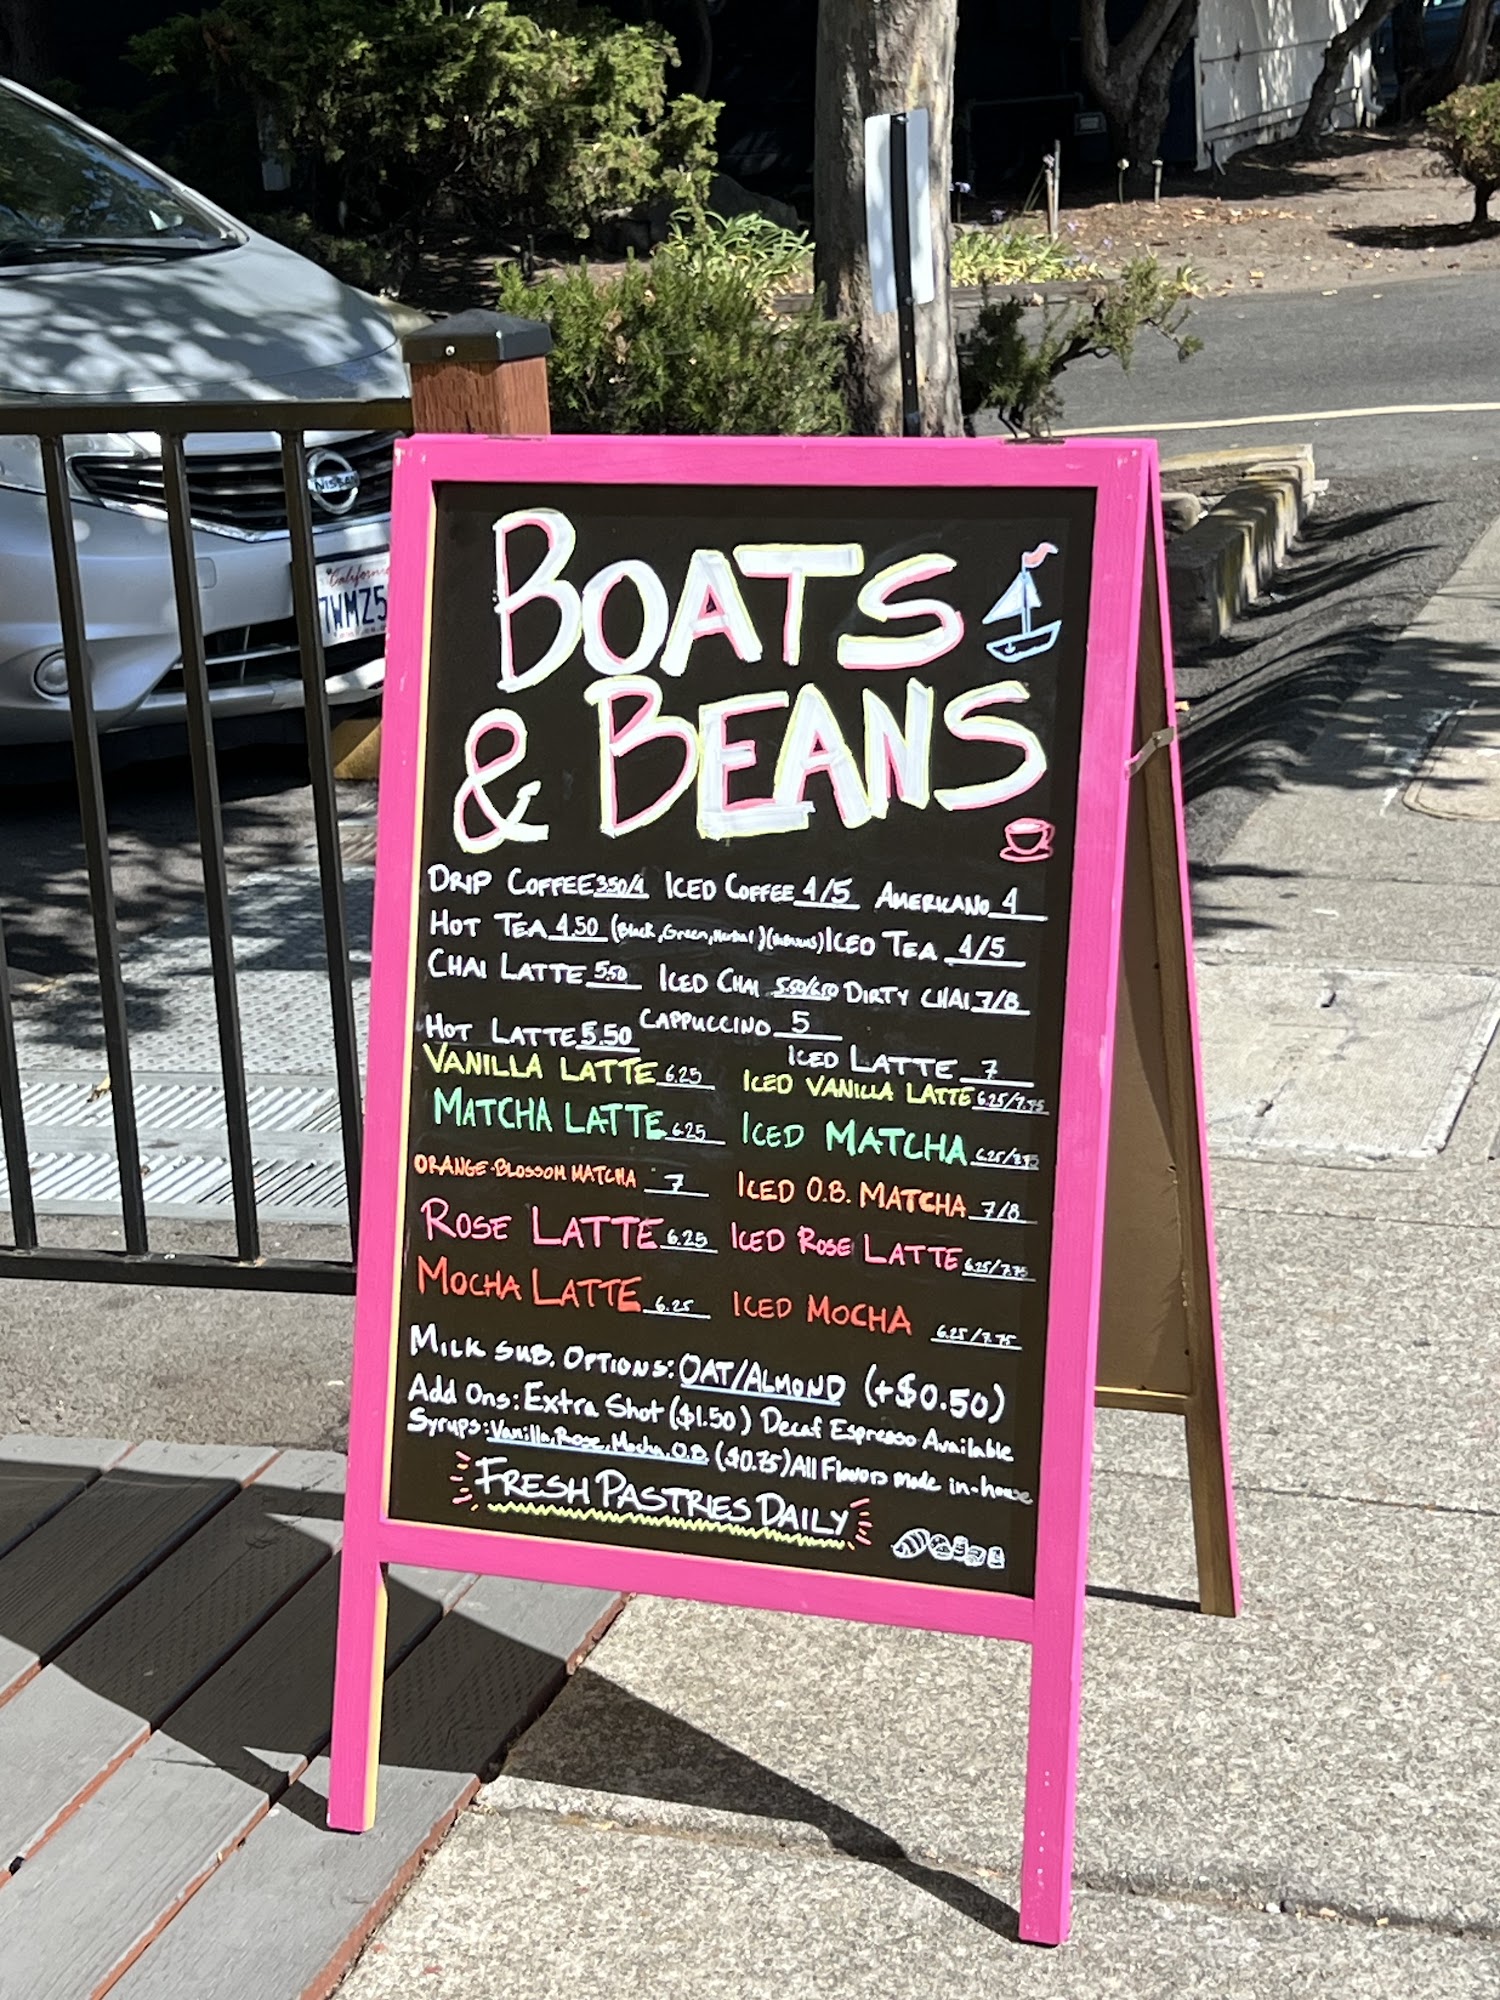 NISSAN
California
7WMZ5
BOATS
& BEANS
DRIP COFFEE 3.50/4 ICED COFFEE 4/5 AMERICANO 4
HOT TEA 4.50 (Black, Green, Herbal) ICED TEA 4/5
CHAI LATTE 5.50 ICED CHAI 5.50/6.50 DIRTY CHAI 7/8
HOT LATTE 5.50 CAPPUCCINO 5
ICED LATTE 7
VANILLA LATTE 6.25 ICED VANILLA LATTE 6.25/7.75
MATCHA LATTE 6.25 ICED MATCHA 6.25/7.75
ORANGE-BLOSSOM MATCHA 7 ICED O.B. MATCHA 7/8
ROSE LATTE 6.25 ICED ROSE LATTE 6.25/7.75
MOCHA LATTE 6.25 ICED MOCHA 6.25/7.75
MILK SUB. OPTIONS: OAT/ALMOND (+$0.50)
Add Ons: Extra Shot ($1.50) Decaf Espresso Available
Syrups: Vanilla, Rose, Mocha, O.B. ($0.75) All Flavors made in-house
FRESH PASTRIES DAILY